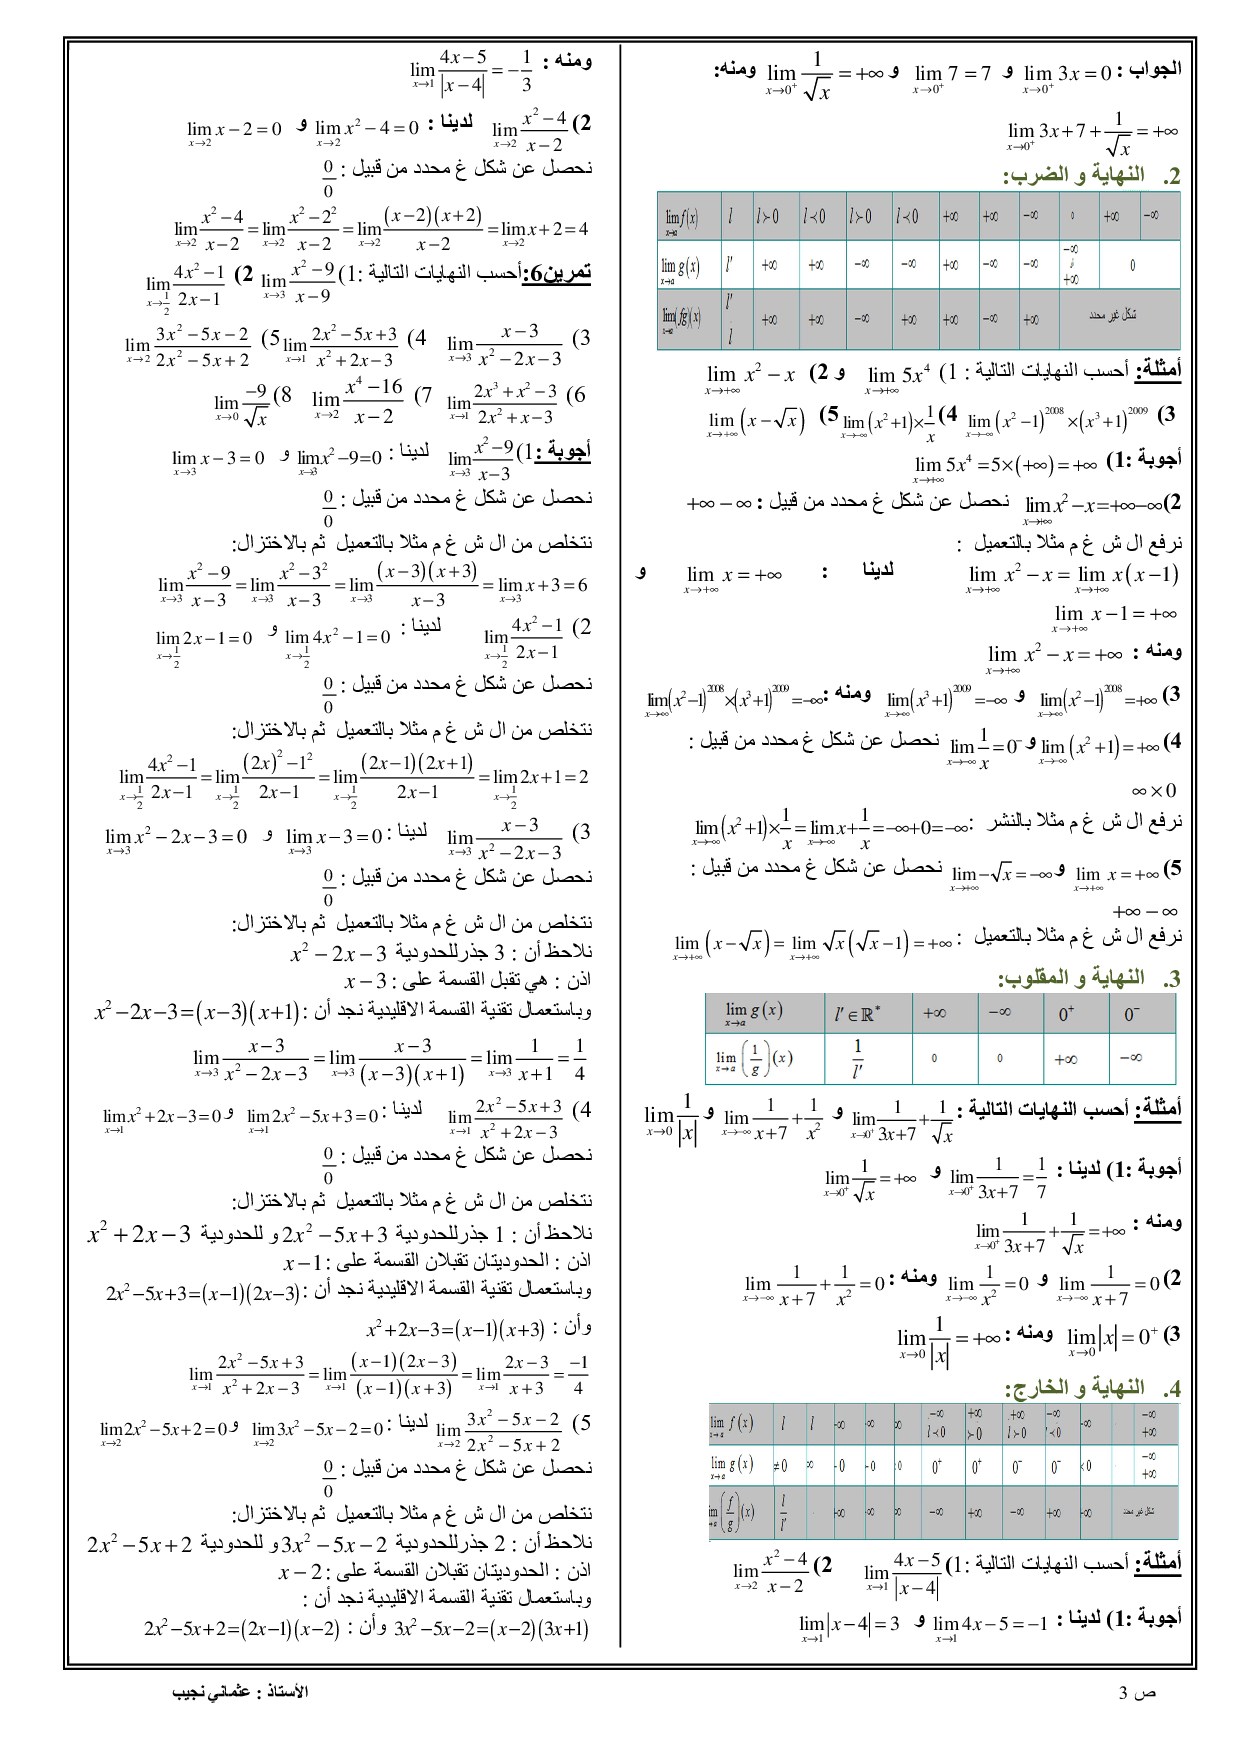 الجواب : lim_{x→0⁺} 3x = 0 و lim_{x→0⁺} 7 = 7 و lim_{x→0⁺} 1/√x = +∞ ومنه:
lim_{x→0⁺} 3x + 7 + 1/√x = +∞
2. النهاية و الضرب:
lim_{x→a} f(x) | l | l≻0 | l≺0 | l≻0 | l≺0 | +∞ | +∞ | −∞ | 0 | +∞ | −∞
lim_{x→a} g(x) | l′ | +∞ | +∞ | −∞ | −∞ | +∞ | −∞ | −∞ | −∞ أو +∞ | 0
lim_{x→a} (fg)(x) | l′.l | +∞ | +∞ | −∞ | +∞ | +∞ | −∞ | +∞ | شكل غير محدد
أمثلة: أحسب النهايات التالية : 1) lim_{x→+∞} 5x⁴ و 2) lim_{x→+∞} x² − x
3) lim_{x→−∞} (x² −1)^2008 × (x³ +1)^2009 4) lim_{x→−∞} (x² +1)× 1/x 5) lim_{x→+∞} (x − √x)
أجوبة :1) lim_{x→+∞} 5x⁴ = 5×(+∞) = +∞
2) lim_{x→+∞} x² − x = +∞−∞ نحصل عن شكل غ محدد من قبيل : +∞ − ∞
نرفع ال ش غ م مثلا بالتعميل :
lim_{x→+∞} x² − x = lim_{x→+∞} x(x −1) لدينا : lim_{x→+∞} x = +∞ و
lim_{x→+∞} x −1 = +∞
ومنه : lim_{x→+∞} x² − x = +∞
3) lim_{x→−∞} (x² −1)^2008 = +∞ و lim_{x→−∞} (x³ +1)^2009 = −∞ ومنه : lim_{x→−∞} (x² −1)^2008 × (x³ +1)^2009 = −∞
4) lim_{x→−∞} (x² +1) = +∞ و lim_{x→−∞} 1/x = 0⁻ نحصل عن شكل غ محدد من قبيل :
∞ × 0
نرفع ال ش غ م مثلا بالنشر : lim_{x→−∞} (x² +1)× 1/x = lim_{x→−∞} x + 1/x = −∞+0 = −∞
5) lim_{x→+∞} x = +∞ و lim_{x→+∞} −√x = −∞ نحصل عن شكل غ محدد من قبيل :
+∞ − ∞
نرفع ال ش غ م مثلا بالتعميل : lim_{x→+∞} (x − √x) = lim_{x→+∞} √x(√x −1) = +∞
3. النهاية و المقلوب:
lim_{x→a} g(x) | l′ ∈ ℝ* | +∞ | −∞ | 0⁺ | 0⁻
lim_{x→a} (1/g)(x) | 1/l′ | 0 | 0 | +∞ | −∞
أمثلة: أحسب النهايات التالية : lim_{x→0⁺} 1/(3x+7) + 1/√x و lim_{x→−∞} 1/(x+7) + 1/x² و lim_{x→0} 1/|x|
أجوبة :1) لدينا : lim_{x→0⁺} 1/(3x+7) = 1/7 و lim_{x→0⁺} 1/√x = +∞
ومنه : lim_{x→0⁺} 1/(3x+7) + 1/√x = +∞
2) lim_{x→−∞} 1/(x+7) = 0 و lim_{x→−∞} 1/x² = 0 ومنه : lim_{x→−∞} 1/(x+7) + 1/x² = 0
3) lim_{x→0} |x| = 0⁺ ومنه : lim_{x→0} 1/|x| = +∞
4. النهاية و الخارج:
lim_{x→a} f(x) | l | l | -∞ | -∞ | ∞ | −∞ l≺0 | +∞ ≻0 | +∞ l≻0 | −∞ ≺0 | -∞ | −∞ +∞
lim_{x→a} g(x) | ≠0 | ∞ | -0 | -0 | 0 | 0⁺ | 0⁺ | 0⁻ | 0⁻ | ≺0 | −∞ +∞
(f/g)(x) | l/l′ | +∞ | -∞ | ∞ | −∞ | +∞ | −∞ | +∞ | -∞ | شكل غير محدد
أمثلة: أحسب النهايات التالية :1) lim_{x→1} (4x−5)/|x−4| 2) lim_{x→2} (x²−4)/(x−2)
أجوبة :1) لدينا : lim_{x→1} 4x−5 = −1 و lim_{x→1} |x−4| = 3
ومنه : lim_{x→1} (4x−5)/|x−4| = −1/3
2) lim_{x→2} (x²−4)/(x−2) لدينا : lim_{x→2} x² − 4 = 0 و lim_{x→2} x − 2 = 0
نحصل عن شكل غ محدد من قبيل : 0/0
lim_{x→2} (x²−4)/(x−2) = lim_{x→2} (x²−2²)/(x−2) = lim_{x→2} (x−2)(x+2)/(x−2) = lim_{x→2} x+2 = 4
تمرين6:أحسب النهايات التالية :1) lim_{x→3} (x²−9)/(x−9) 2) lim_{x→1/2} (4x²−1)/(2x−1)
3) lim_{x→3} (x−3)/(x²−2x−3) 4) lim_{x→1} (2x²−5x+3)/(x²+2x−3) 5) lim_{x→2} (3x²−5x−2)/(2x²−5x+2)
6) lim_{x→1} (2x³+x²−3)/(2x²+x−3) 7) lim_{x→2} (x⁴−16)/(x−2) 8) lim_{x→0} −9/√x
أجوبة :1) lim_{x→3} (x²−9)/(x−3) لدينا : lim_{x→3} x²−9=0 و lim_{x→3} x−3=0
نحصل عن شكل غ محدد من قبيل : 0/0
نتخلص من ال ش غ م مثلا بالتعميل ثم بالاختزال:
lim_{x→3} (x²−9)/(x−3) = lim_{x→3} (x²−3²)/(x−3) = lim_{x→3} (x−3)(x+3)/(x−3) = lim_{x→3} x+3 = 6
2) lim_{x→1/2} (4x²−1)/(2x−1) لدينا : lim_{x→1/2} 4x²−1=0 و lim_{x→1/2} 2x−1=0
نحصل عن شكل غ محدد من قبيل : 0/0
نتخلص من ال ش غ م مثلا بالتعميل ثم بالاختزال:
lim_{x→1/2} (4x²−1)/(2x−1) = lim_{x→1/2} ((2x)²−1²)/(2x−1) = lim_{x→1/2} (2x−1)(2x+1)/(2x−1) = lim_{x→1/2} 2x+1 = 2
3) lim_{x→3} (x−3)/(x²−2x−3) لدينا : lim_{x→3} x−3=0 و lim_{x→3} x²−2x−3=0
نحصل عن شكل غ محدد من قبيل : 0/0
نتخلص من ال ش غ م مثلا بالتعميل ثم بالاختزال:
نلاحظ أن : 3 جذرللحدودية x² − 2x − 3
اذن : هي تقبل القسمة على : x − 3
وباستعمال تقنية القسمة الاقليدية نجد أن : x²−2x−3=(x−3)(x+1)
lim_{x→3} (x−3)/(x²−2x−3) = lim_{x→3} (x−3)/((x−3)(x+1)) = lim_{x→3} 1/(x+1) = 1/4
4) lim_{x→1} (2x²−5x+3)/(x²+2x−3) لدينا : lim_{x→1} 2x²−5x+3=0 و lim_{x→1} x²+2x−3=0
نحصل عن شكل غ محدد من قبيل : 0/0
نتخلص من ال ش غ م مثلا بالتعميل ثم بالاختزال:
نلاحظ أن : 1 جذرللحدودية 2x²−5x+3 و للحدودية x²+2x−3
اذن : الحدوديتان تقبلان القسمة على : x−1
وباستعمال تقنية القسمة الاقليدية نجد أن : 2x²−5x+3=(x−1)(2x−3)
وأن : x²+2x−3=(x−1)(x+3)
lim_{x→1} (2x²−5x+3)/(x²+2x−3) = lim_{x→1} (x−1)(2x−3)/((x−1)(x+3)) = lim_{x→1} (2x−3)/(x+3) = −1/4
5) lim_{x→2} (3x²−5x−2)/(2x²−5x+2) لدينا : lim_{x→2} 3x²−5x−2=0 و lim_{x→2} 2x²−5x+2=0
نحصل عن شكل غ محدد من قبيل : 0/0
نتخلص من ال ش غ م مثلا بالتعميل ثم بالاختزال:
نلاحظ أن : 2 جذرللحدودية 3x²−5x−2 و للحدودية 2x²−5x+2
اذن : الحدوديتان تقبلان القسمة على : x−2
وباستعمال تقنية القسمة الاقليدية نجد أن :
3x²−5x−2=(x−2)(3x+1) وأن : 2x²−5x+2=(2x−1)(x−2)
ص 3
الأستاذ : عثماني نجيب